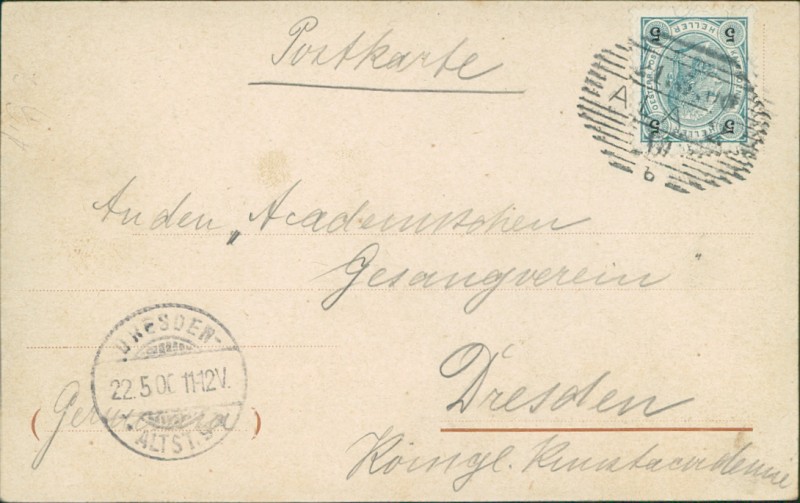 Postkarte
5 HELLER 5
5 HELLER 5
A
b
An den „Academischen
Gesangverein"
DRESDEN-
22.5.00 11-12V.
ALTST. 9
Dresden
(Germania)
Königl. Kunstacademie